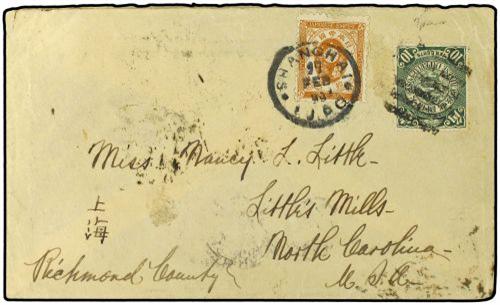 SHANGHAI
FEB
I.J.P.O.
10 10
Miss. Nancy L. Little-
Little's Mills-
North Carolina-
U.S.A.
上海
Richmond County